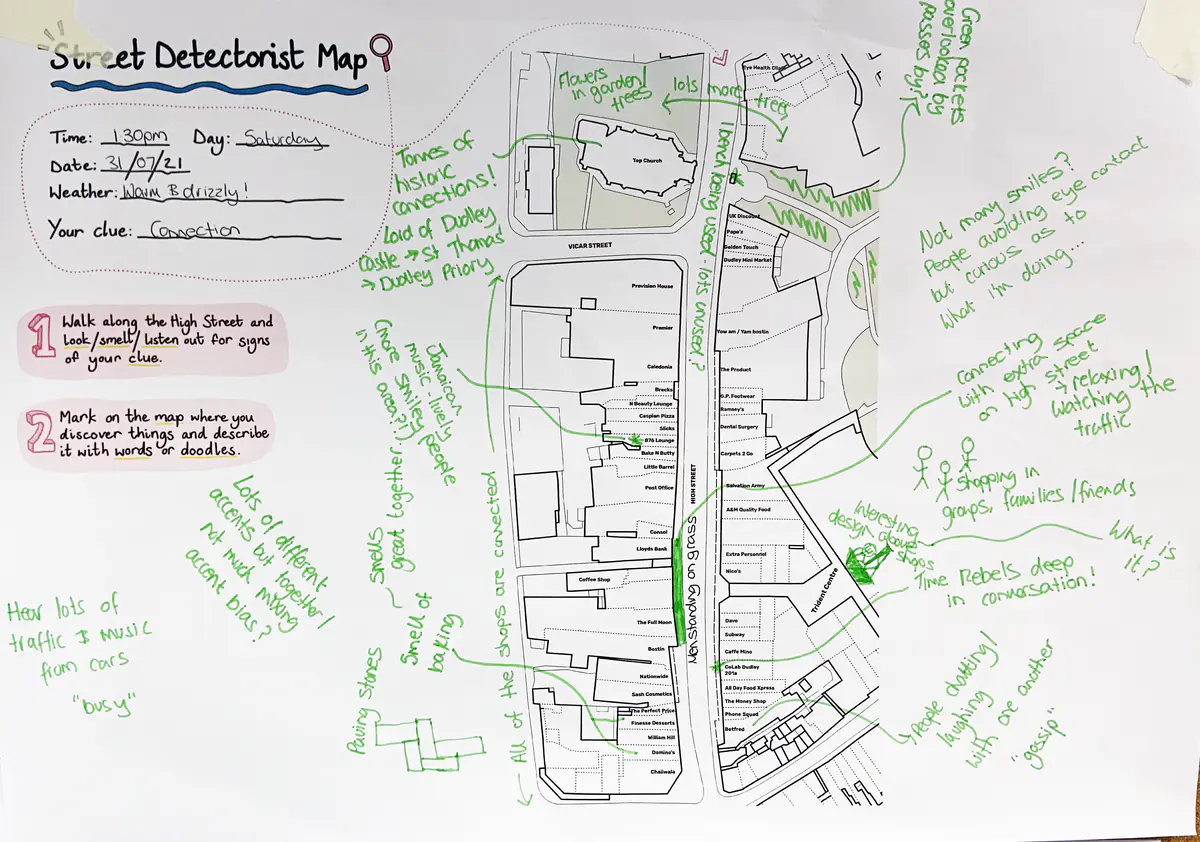 Street Detectorist Map
Time: 1.30pm Day: Saturday
Date: 31/07/21
Weather: Warm & drizzly!
Your clue: Connection
1 Walk along the High Street and
look/smell/listen out for signs
of your clue.
2 Mark on the map where you
discover things and describe
it with words or doodles.
Lots of different
accents but together!
not much mixing
accent bias?
Hear lots of
traffic & music
from cars
"busy"
Paving stones
Smell of
baking
Smells
great together
Jamaican
music - lively
(more smiley people
in this area?!)
Tonnes of
historic
connections!
Lord of Dudley
Castle → St Thomas'
→ Dudley Priory
All of the shops are connected
Flowers
in garden!
trees
lots more trees
1 bench being used - lots unused?
Men standing on grass
Eye Health Clinic
Top Church
VICAR STREET
HIGH STREET
Provision House
Premier
Caledonia
Brecks
N Beauty Lounge
Caspian Pizza
Slicks
876 Lounge
Bake N Butty
Little Barrel
Post Office
Consol
Lloyds Bank
Coffee Shop
The Full Moon
Bostin
Nationwide
Sash Cosmetics
The Perfect Price
Finesse Desserts
William Hill
Domino's
Chaiiwala
UK Discount
Pape's
Golden Touch
Dudley Mini Market
Yow am / Yam bostin
The Product
G.P. Footwear
Ramsey's
Dental Surgery
Carpets 2 Go
Salvation Army
A&M Quality Food
Extra Personnel
Nico's
Trident Centre
Dave
Subway
Caffe Mino
CoLab Dudley
201a
All Day Food Xpress
The Money Shop
Phone Squad
Betfred
Green pockets
overlooked by
passes by?
Not many smiles?
People avoiding eye contact
but curious as to
what I'm doing...
Connecting
with extra space
on high street
→ relaxing!
watching the
traffic
Shopping in
groups, families/friends
Interesting
design above
shops
What is
it?
Time Rebels deep
in conversation!
People chatting!
laughing
with one another
"gossip"